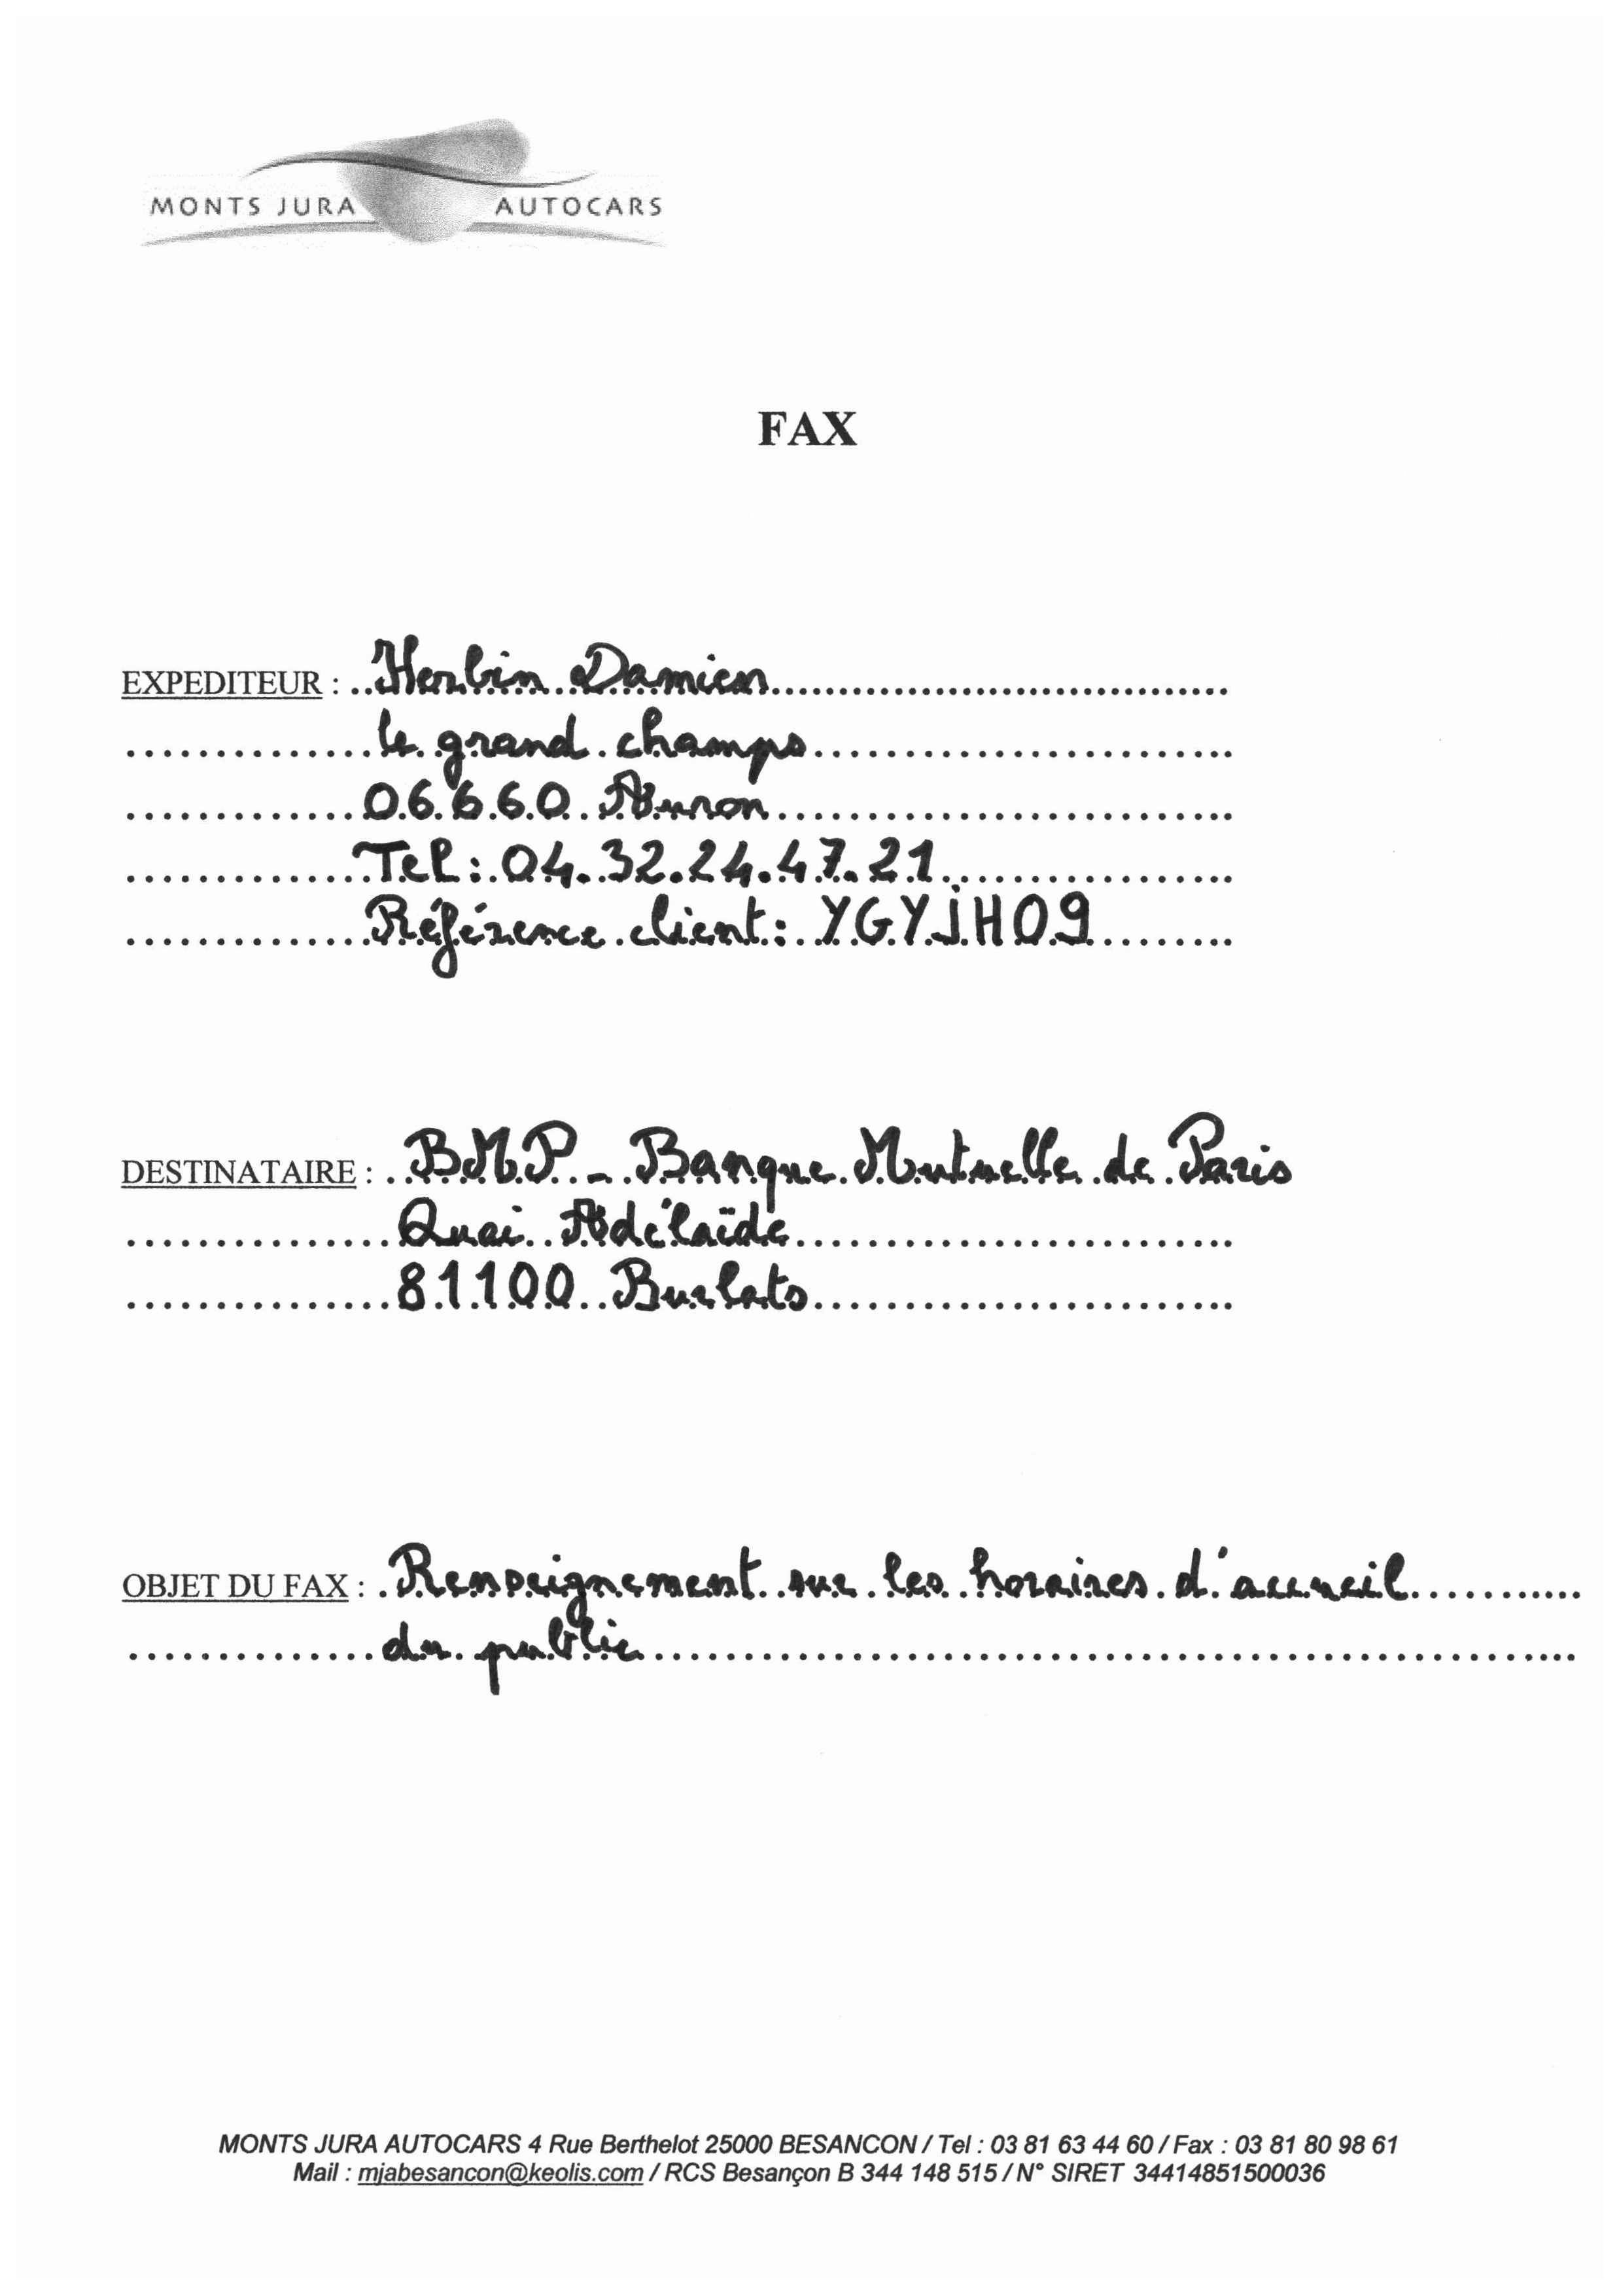 MONTS JURA AUTOCARS
FAX
EXPEDITEUR : Herbin Damien
le grand champs
06660 Auron
Tel : 04.32.24.47.21
Référence client : YGYJH09
DESTINATAIRE : BMP - Banque Mutuelle de Paris
Quai Adélaïde
81100 Burlats
OBJET DU FAX : Renseignement sur les horaires d'accueil
du public
MONTS JURA AUTOCARS 4 Rue Berthelot 25000 BESANCON / Tel : 03 81 63 44 60 / Fax : 03 81 80 98 61
Mail : mjabesancon@keolis.com / RCS Besançon B 344 148 515 / N° SIRET 34414851500036